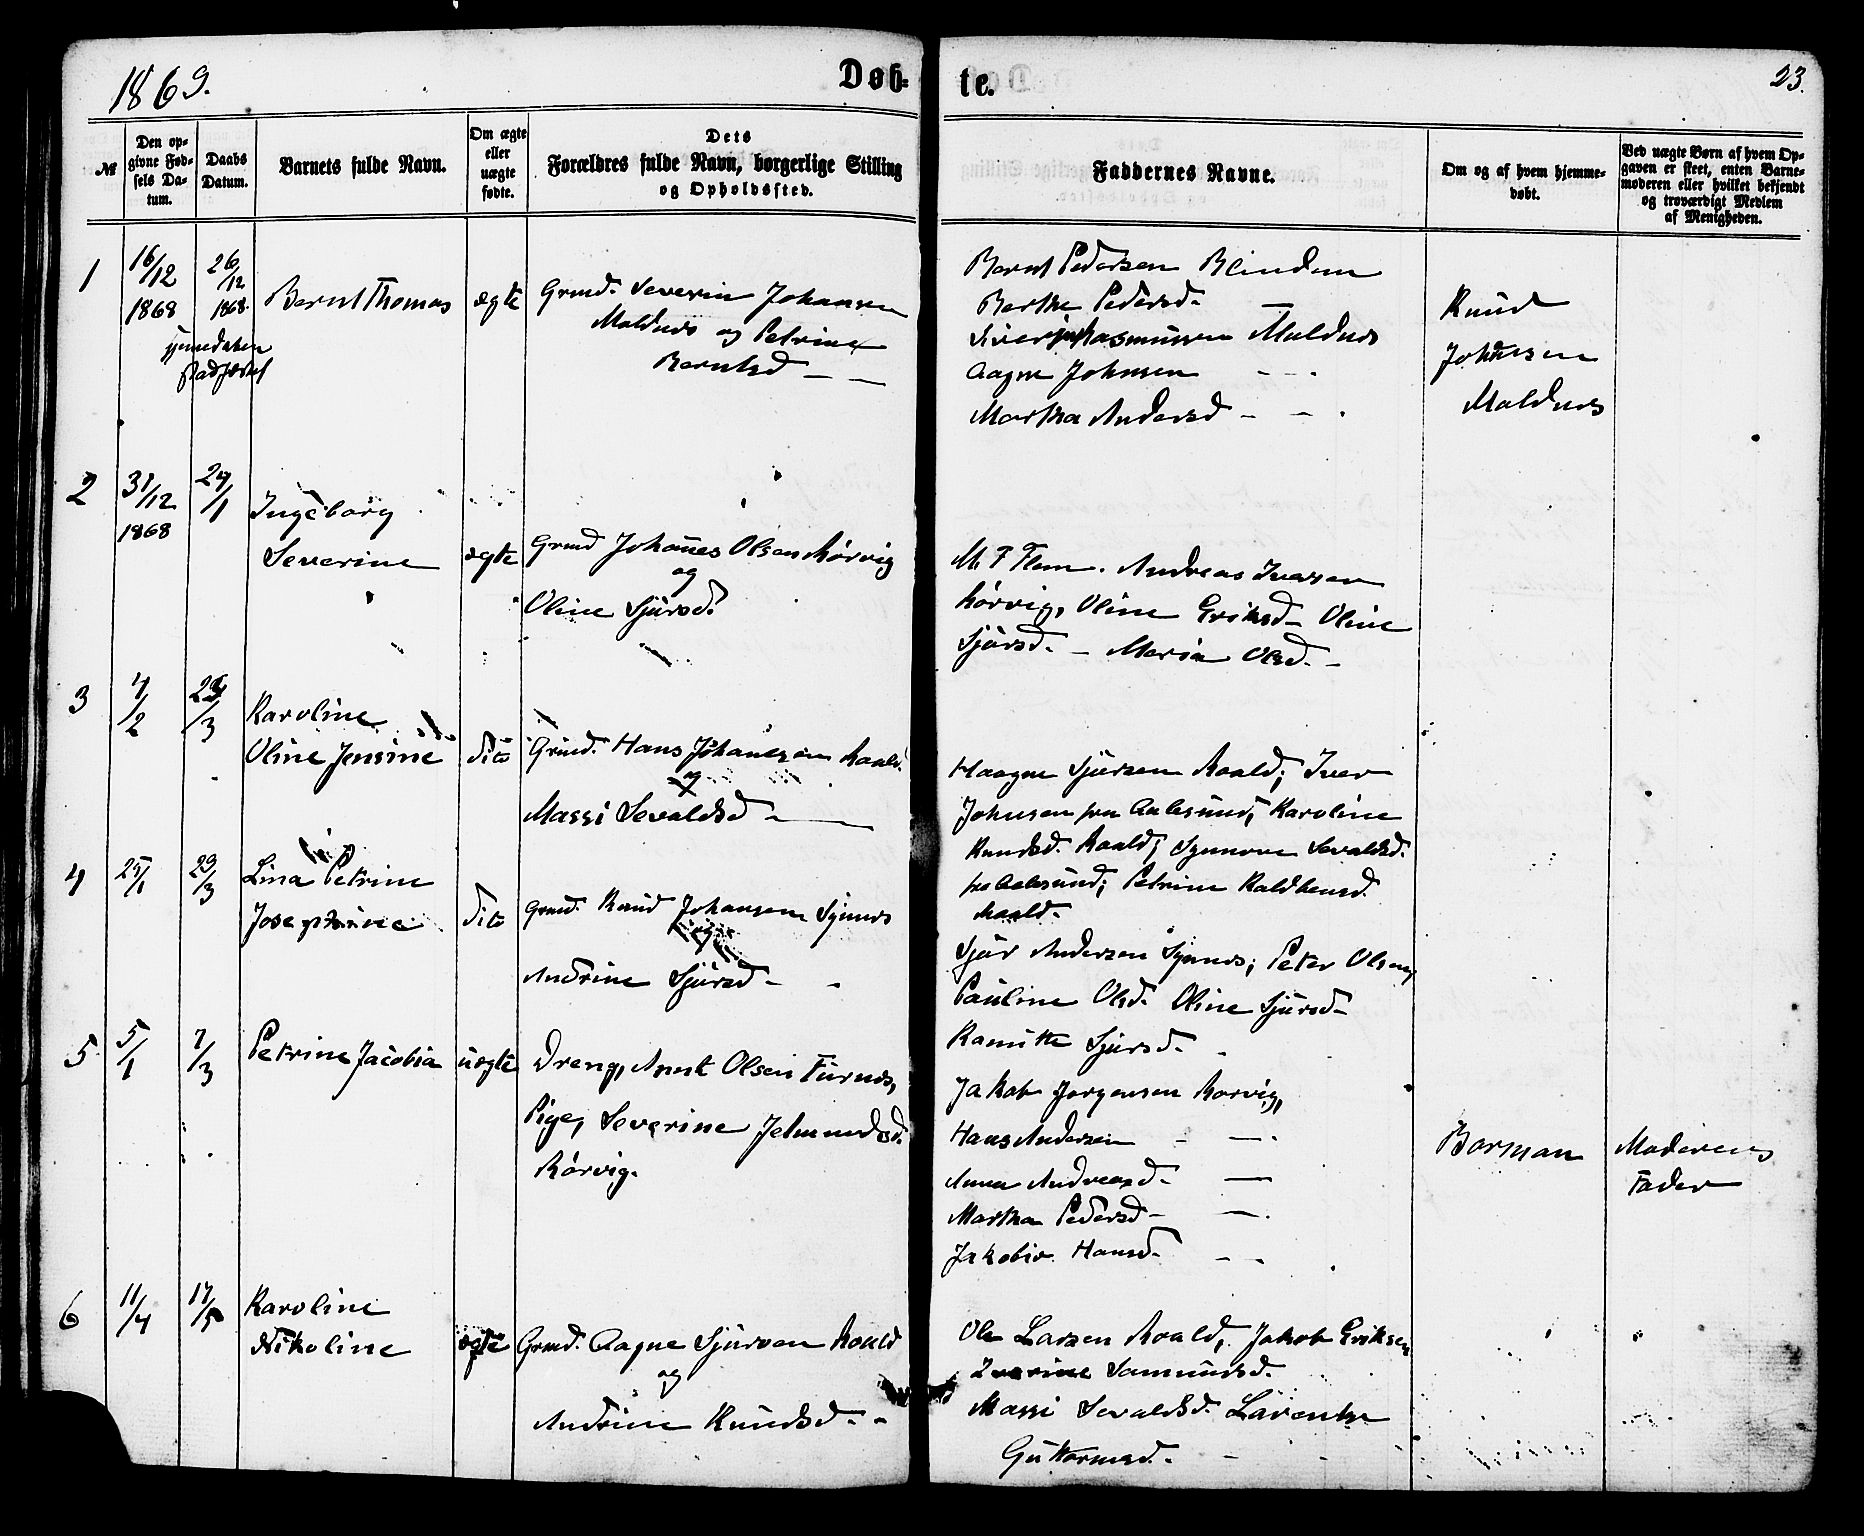 1869.
Døb-
te.
23.
№
Den op-
givne Fød-
sels Da-
tum.
Daabs
Datum.
Barnets fulde Navn.
Om ægte
eller
uægte
fødte.
Dets
Forældres fulde Navn, borgerlige Stilling
og Opholdssted.
Faddernes Navne.
Om og af hvem hjemme-
døbt.
Ved uægte Børn af hvem Op-
gaven er skeet, enten Barne-
moderen eller hvilket bekjendt
og troværdigt Medlem
af Menigheden.
1
16/12
1868
26/12
1868.
Bernt Thomas
ægte
Grmd. Severin Johansen
Moldnæs og Petrine
Berntsd — —
Bernt Pedersen Blindem
Berthe Pedersd. —
Siver Rasmussen Moldnæs
Aagne Johnsen — - .
Martha Andersd - - .
Knud
Johnsen
Moldnæs
2
31/12
1868
29/1
Ingeborg
Severine
ægte
Grmd Johannes Olsen Rørvig
og
Oline Sjursd.
M. F Flem. Andreas Iversen
Rørvig, Oline Eriksd - Oline
Sjursd. - Maria Olsd. -
3
4/2
/3
Karoline
Oline Jensine
dito
Grmd. Hans Johansen Roald.
og
Massi Sevaldsd - —
Haagne Sjursen Roald; Iver
Johnsen fra Aalesund, Karoline
Knudsd. Roald; Synnove Sevaldsd.
fra Aalesund; Petrine Kaldhensd
Roald.
4
25/1
29/3
Lina Petrine
Josephine
dito
Grmd. Knud Johansen Synnes
og
Andrine Sjursd - -
Sjur Andersen Synnes; Peter Olsen,
Pauline Olsd. Oline Sjursd -
Ramitte Sjursd. - .
5
5/1
7/3
Petrine Jacobia
uægte
Dreng, Anut Olsen Furnæs,
Pige, Severine Jelmundsd.
Rørvig.
Jakob Jørgensen Rørvig,
Hans Andersen - — .
Anna Andreasd. —
Martha Pedersd - — .
Jakobie Hansd. - -
Borman
Moderens
Fader
6
11/4
17/5
Karoline
Nikoline
ægte
Grmd. Aagne Sjursen Roald
og
Andrine Knudsd. -
Ole Larsen Roald, Jakob Eriksen
Iverine Samundsd.
Massi Sevaldsd. Laventse
Guttormsd. -